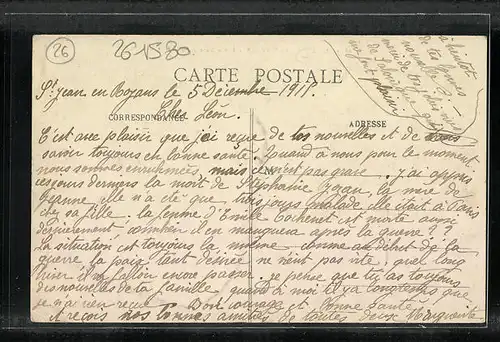 26
26-1580
à bientôt
de tes bonnes
nouvelles
CARTE POSTALE
St Jean en Royans le 5 Décembre 1918.
CORRESPONDANCE
Cher Léon.
ADRESSE
C'est avec plaisir que j'ai reçue de tes nouvelles et de vous
savoir toujours en bonne santé. Quand à nous pour le moment
nous sommes enrhumées, mais ce n'est pas grave. J'ai appris
ces jours derniers la mort de Stéphanie la mère de
Jeanne, elle n'a été que trois jours malade elle était à Paris
chez sa fille. la femme d'Emile Cochenet est morte aussi
dernièrement, combien il en manquera après la guerre ??
La situation est toujours la même comme au début de la
guerre la paix tant désirée ne vient pas vite, quel long
hiver il va falloir encore passer. je pense que tu as toujours
des nouvelles de ta famille quand à moi il y a longtemps que
je n'ai rien reçue. Bon courage et bonne santé.
Reçois nos bonnes amitiés de toutes deux Marguerite